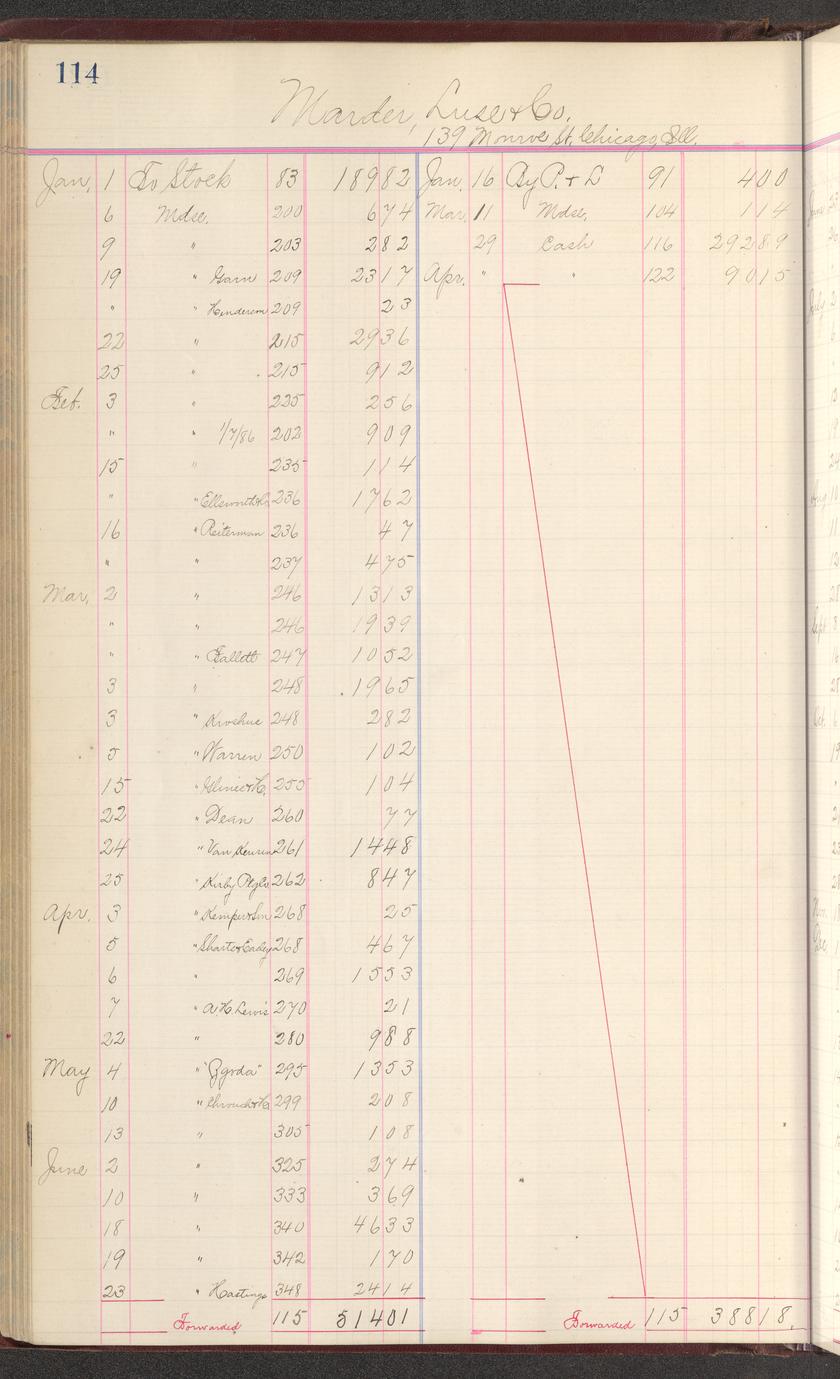 114
Marder, Luse & Co.
139 Monroe St. Chicago, Ill.
Jan. 1 To Stock 83 189 82 Jan. 16 By P. & L 91 4 00
6 Mdse. 200 6 74 Mar. 11 Mdse. 104 1 14
9 " 203 2 82 29 Cash 116 292 89
19 " Garn 209 23 17 Apr. " " 122 90 15
" " Henderson 209 23
22 " 215 29 36
25 " 215 9 12
Feb. 3 " 225 2 56
" " 1/7/86 202 9 09
15 " 235 1 14
" " Ellsworth & Co 236 17 62
16 " Reiterman 236 47
" " 237 4 75
Mar. 2 " 246 13 13
" " 246 19 39
" " Gallett 247 10 52
3 " 248 19 65
3 " 248 2 82
5 " Warren 250 1 02
15 " 255 1 04
22 " Dean 260 77
24 " Van Keuren 261 14 48
25 " Kirby Ptg Co 262 8 47
Apr. 3 " Kemper & Son 268 25
5 " 268 4 67
6 " 269 15 53
7 " A.H. Lewis 270 21
22 " 280 9 88
May 4 " 295 13 53
10 " 299 2 08
13 " 305 1 08
June 2 " 325 2 74
10 " 333 3 69
18 " 340 46 33
19 " 342 1 70
23 " Hastings 348 24 14
Forwarded 115 514 01 Forwarded 115 388 18